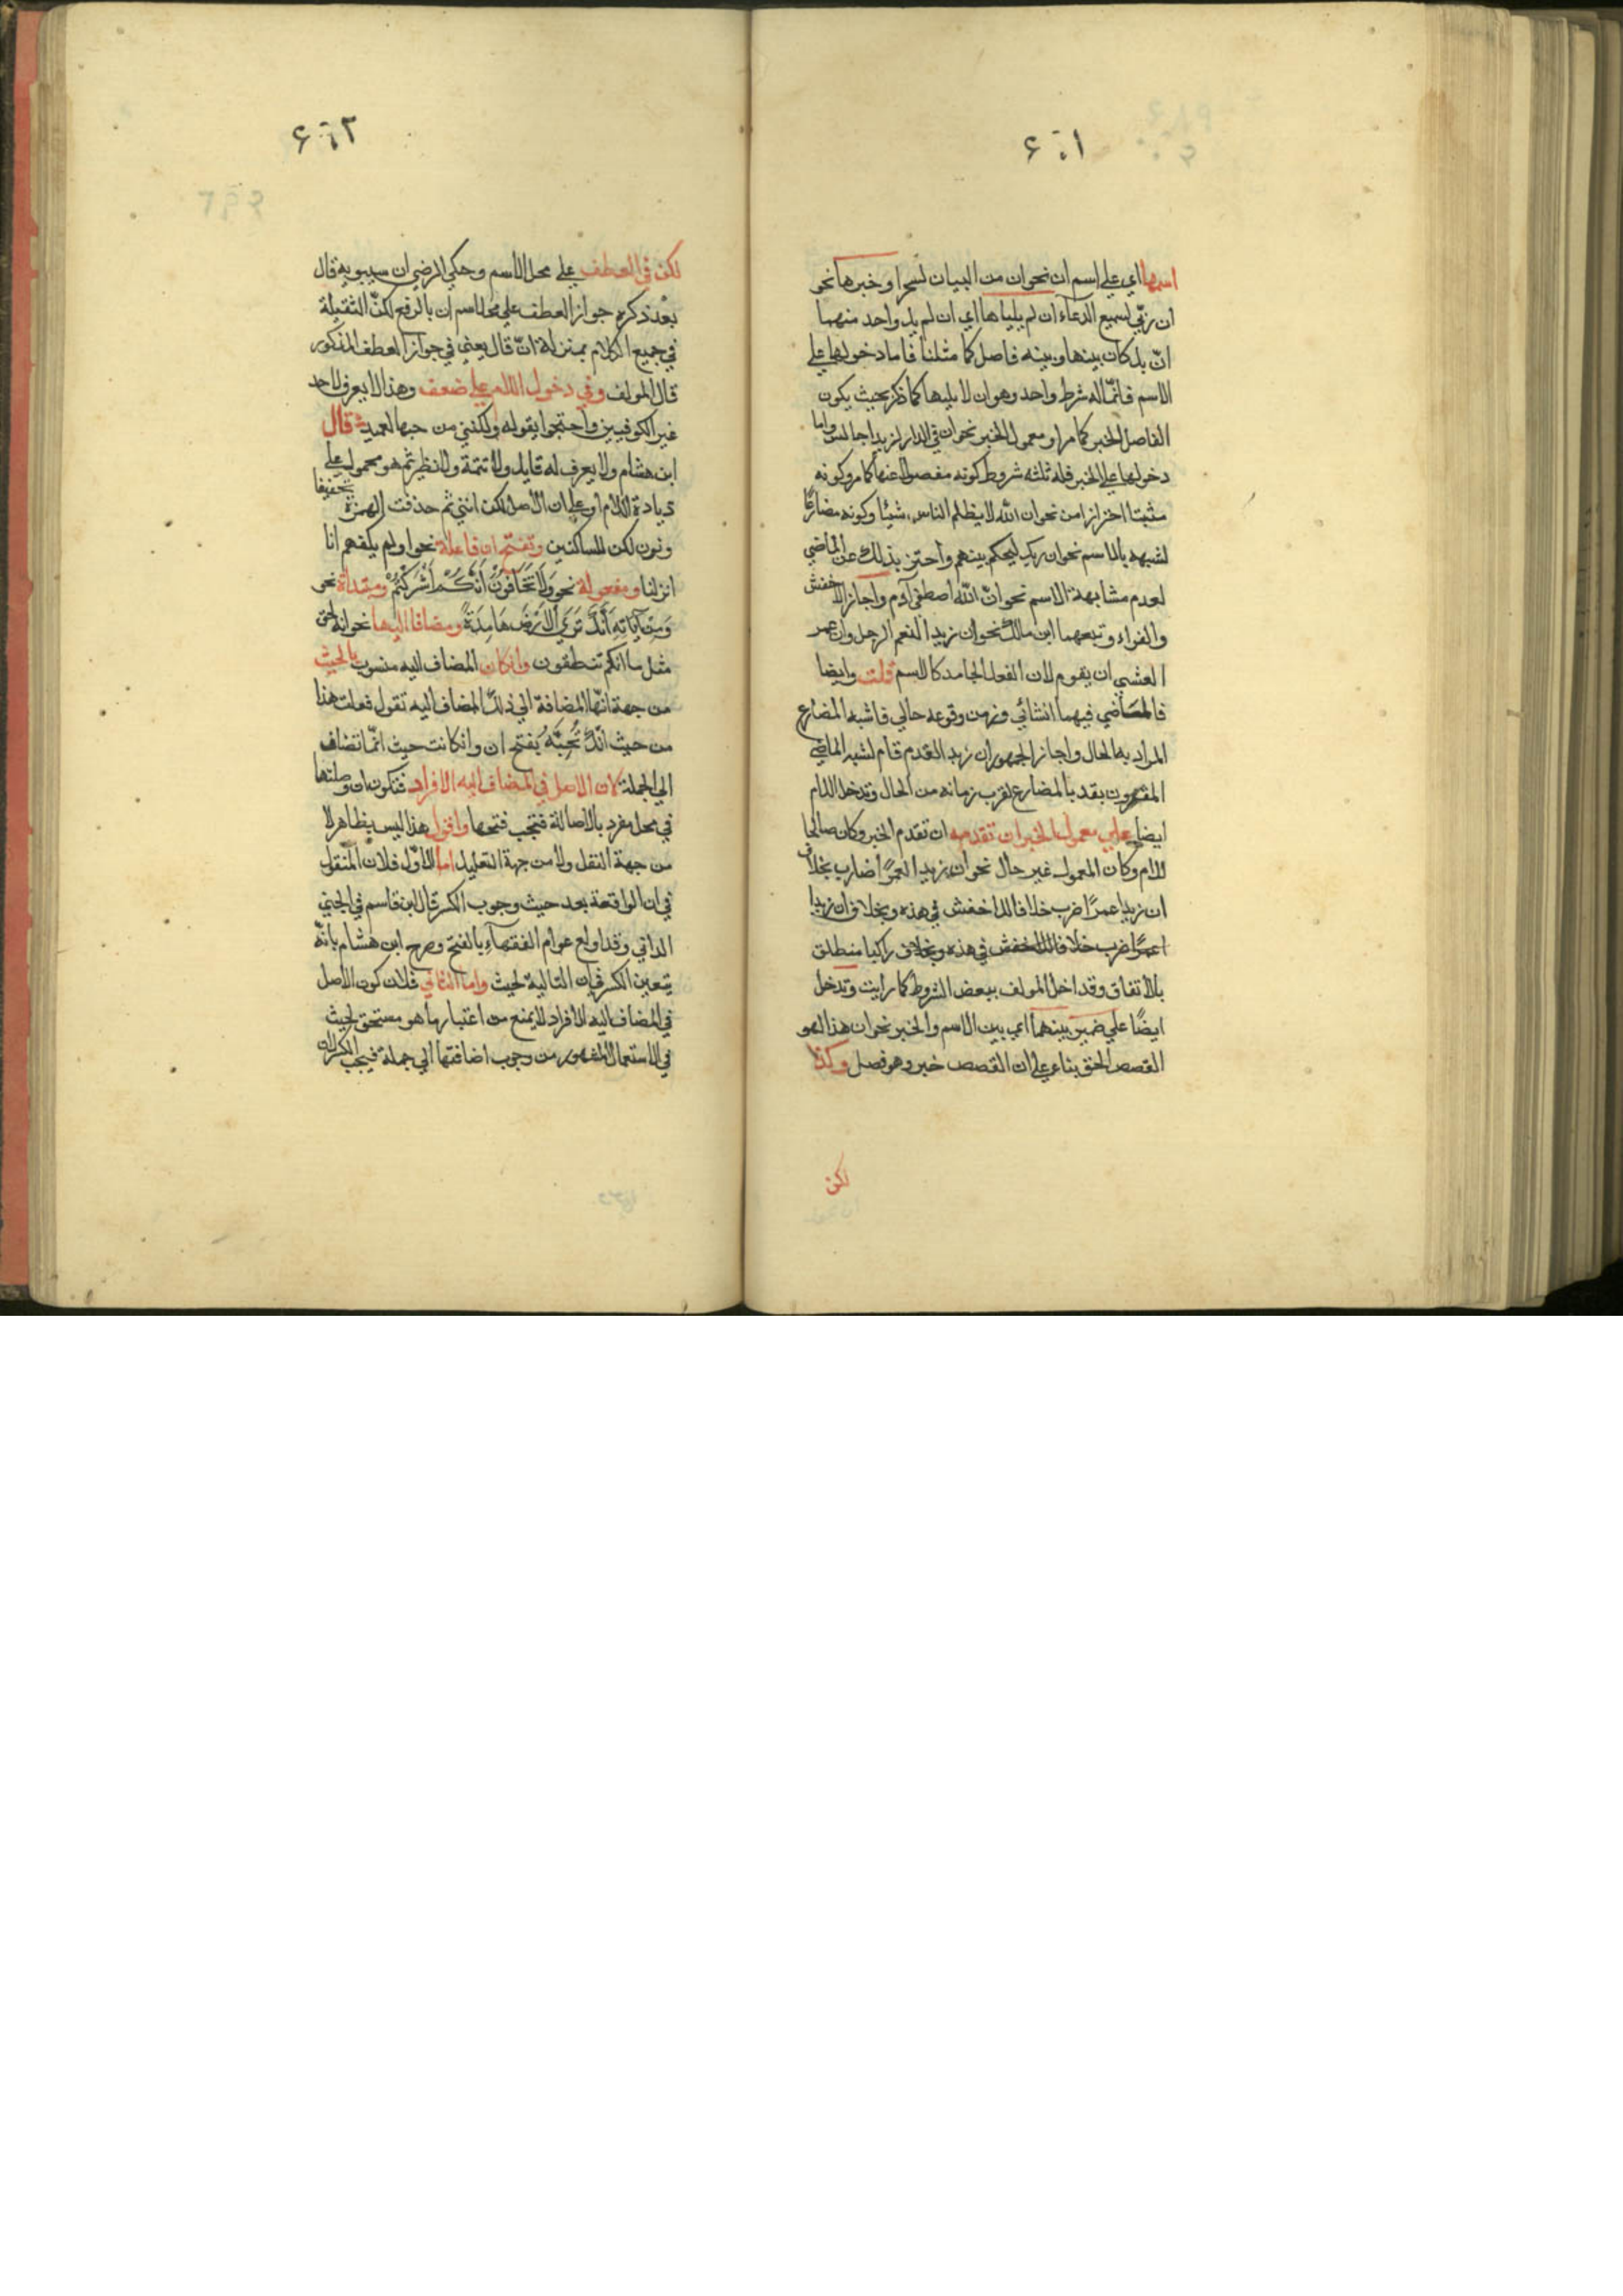 ٦٠١
اسمها اي على اسم ان نحو ان من البيان لسحرا وخبرها نحو
ان ربّي لسميع الدعآء ان لم يلياها اي ان لم يل واحد منهما
انّ بل كان بينها وبينه فاصل كما مثلنا فاما دخولها على
الاسم فانّما له شرط واحد وهو ان لا يليها كما ذكر بحيث يكون
الفاصل الخبر كما مر او معمول الخبر نحو ان في الدار لزيدا جالس واما
دخولها على الخبر فله ثلثه شروط كونه مفصولا عنها كما مر وكونه
مثبتا احترازا من نحو ان الله لا يظلم الناس شيئا وكونه مضارعًا
لشبهه بالاسم نحو ان ربك ليحكم بينهم واحترز بذلك عن الماضي
لعدم مشابهة الاسم نحو انّ الله اصطفى آدم واجاز الاخفش
والفراء وتبعهما ابن مالك نحو ان زيدا لنعم الرجل وان عمرا
لعسى ان يقوم لان الفعل الجامد كالاسم قلت وايضا
فالماضي فيهما انشائي وزمن وقوعه حالي فاشبه المضارع
المراد به الحال واجاز الجمهور ان زيدا لقد قام لشبه الماضي
المقرون بقد بالمضارع لقرب زمانه من الحال وتدخل اللام
ايضا على معمول الخبر ان تقدمه ان تقدم الخبر وكان صالحا
للام وكان المعمول غير حال نحو ان زيدا لعمرًا ضارب بخلاف
ان زيدا عمرًا ضرب خلافا للاخفش في هذه وبخلاف ان زيدا
لعمرًا ضرب خلافا للاخفش في هذه وبخلاف راكبا منطلق
بالاتفاق وقد اخل المولف ببعض الشروط كما رايت وتدخل
ايضًا على ضمير بينهما اي بين الاسم والخبر نحو ان هذا لهو
القصص الحق بناء على ان القصص خبر وهو فصل وكذا
لكن
٦٠٢
لكن في العطف على محل الاسم وحكي الرضي ان سيبويه قال
بعد ذكره جواز العطف على محل اسم ان بالرفع لكنّ الثقيلة
في جميع الكلام بمنزلة انّ قال يعني في جواز العطف المذكور
قال المولف وفي دخول اللام على ضعف وهذا لا يعرف لاحد
غير الكوفيين واحتجوا بقوله ولكنني من حبها لعميد قال
ابن هشام ولا يعرف له قايل ولا تتمة ولا نظير ثم هو محمول على
زيادة اللام او على ان الاصل لكن انني ثم حذفت الهمزة تخفيفا
ونون لكن للساكنين وتفتح ان فاعلة نحو اولم يكفهم انا
انزلنا ومفعولة نحو وَلَا تَخَافُونَ أَنَّكُمْ أَشْرَكْتُمْ ومبتدأة نحو
وَمِنْ آيَاتِهِ أَنَّكَ تَرَى الْأَرْضَ هَامِدَةً ومضافا اليها نحو انه لحق
مثل ما انكم تنطقون وان كان المضاف اليه منسوب بالحيث
من جهة انّها المضافة الى ذلك المضاف اليه تقول فعلت هذا
من حيث انّك تُحِبُّهُ بفتح ان وان كانت حيث انّما تضاف
الي الجملة لان الاصل في المضاف اليه الافراد فتكون ان وصلتها
في محل مفرد بالاصالة فتجب فتحها واقول هذا ليس بظاهر لا
من جهة النقل ولا من جهة التعليل اما الاوّل فلان المنقول
في ان الواقعة بعد حيث وجوب الكسر قال ابن قاسم في الجني
الداني وقد اولع عوام الفقهآء بالفتح وصرح ابن هشام بانّه
يتعين الكسر في ان التالية لحيث واما الثاني فلان كون الاصل
في المضاف اليه الافراد لا يمنع من اعتبار ما هو مستحق لحيث
في الاستعمال المشهور من وجوب اضافتها الي جملة فيجب الكسر